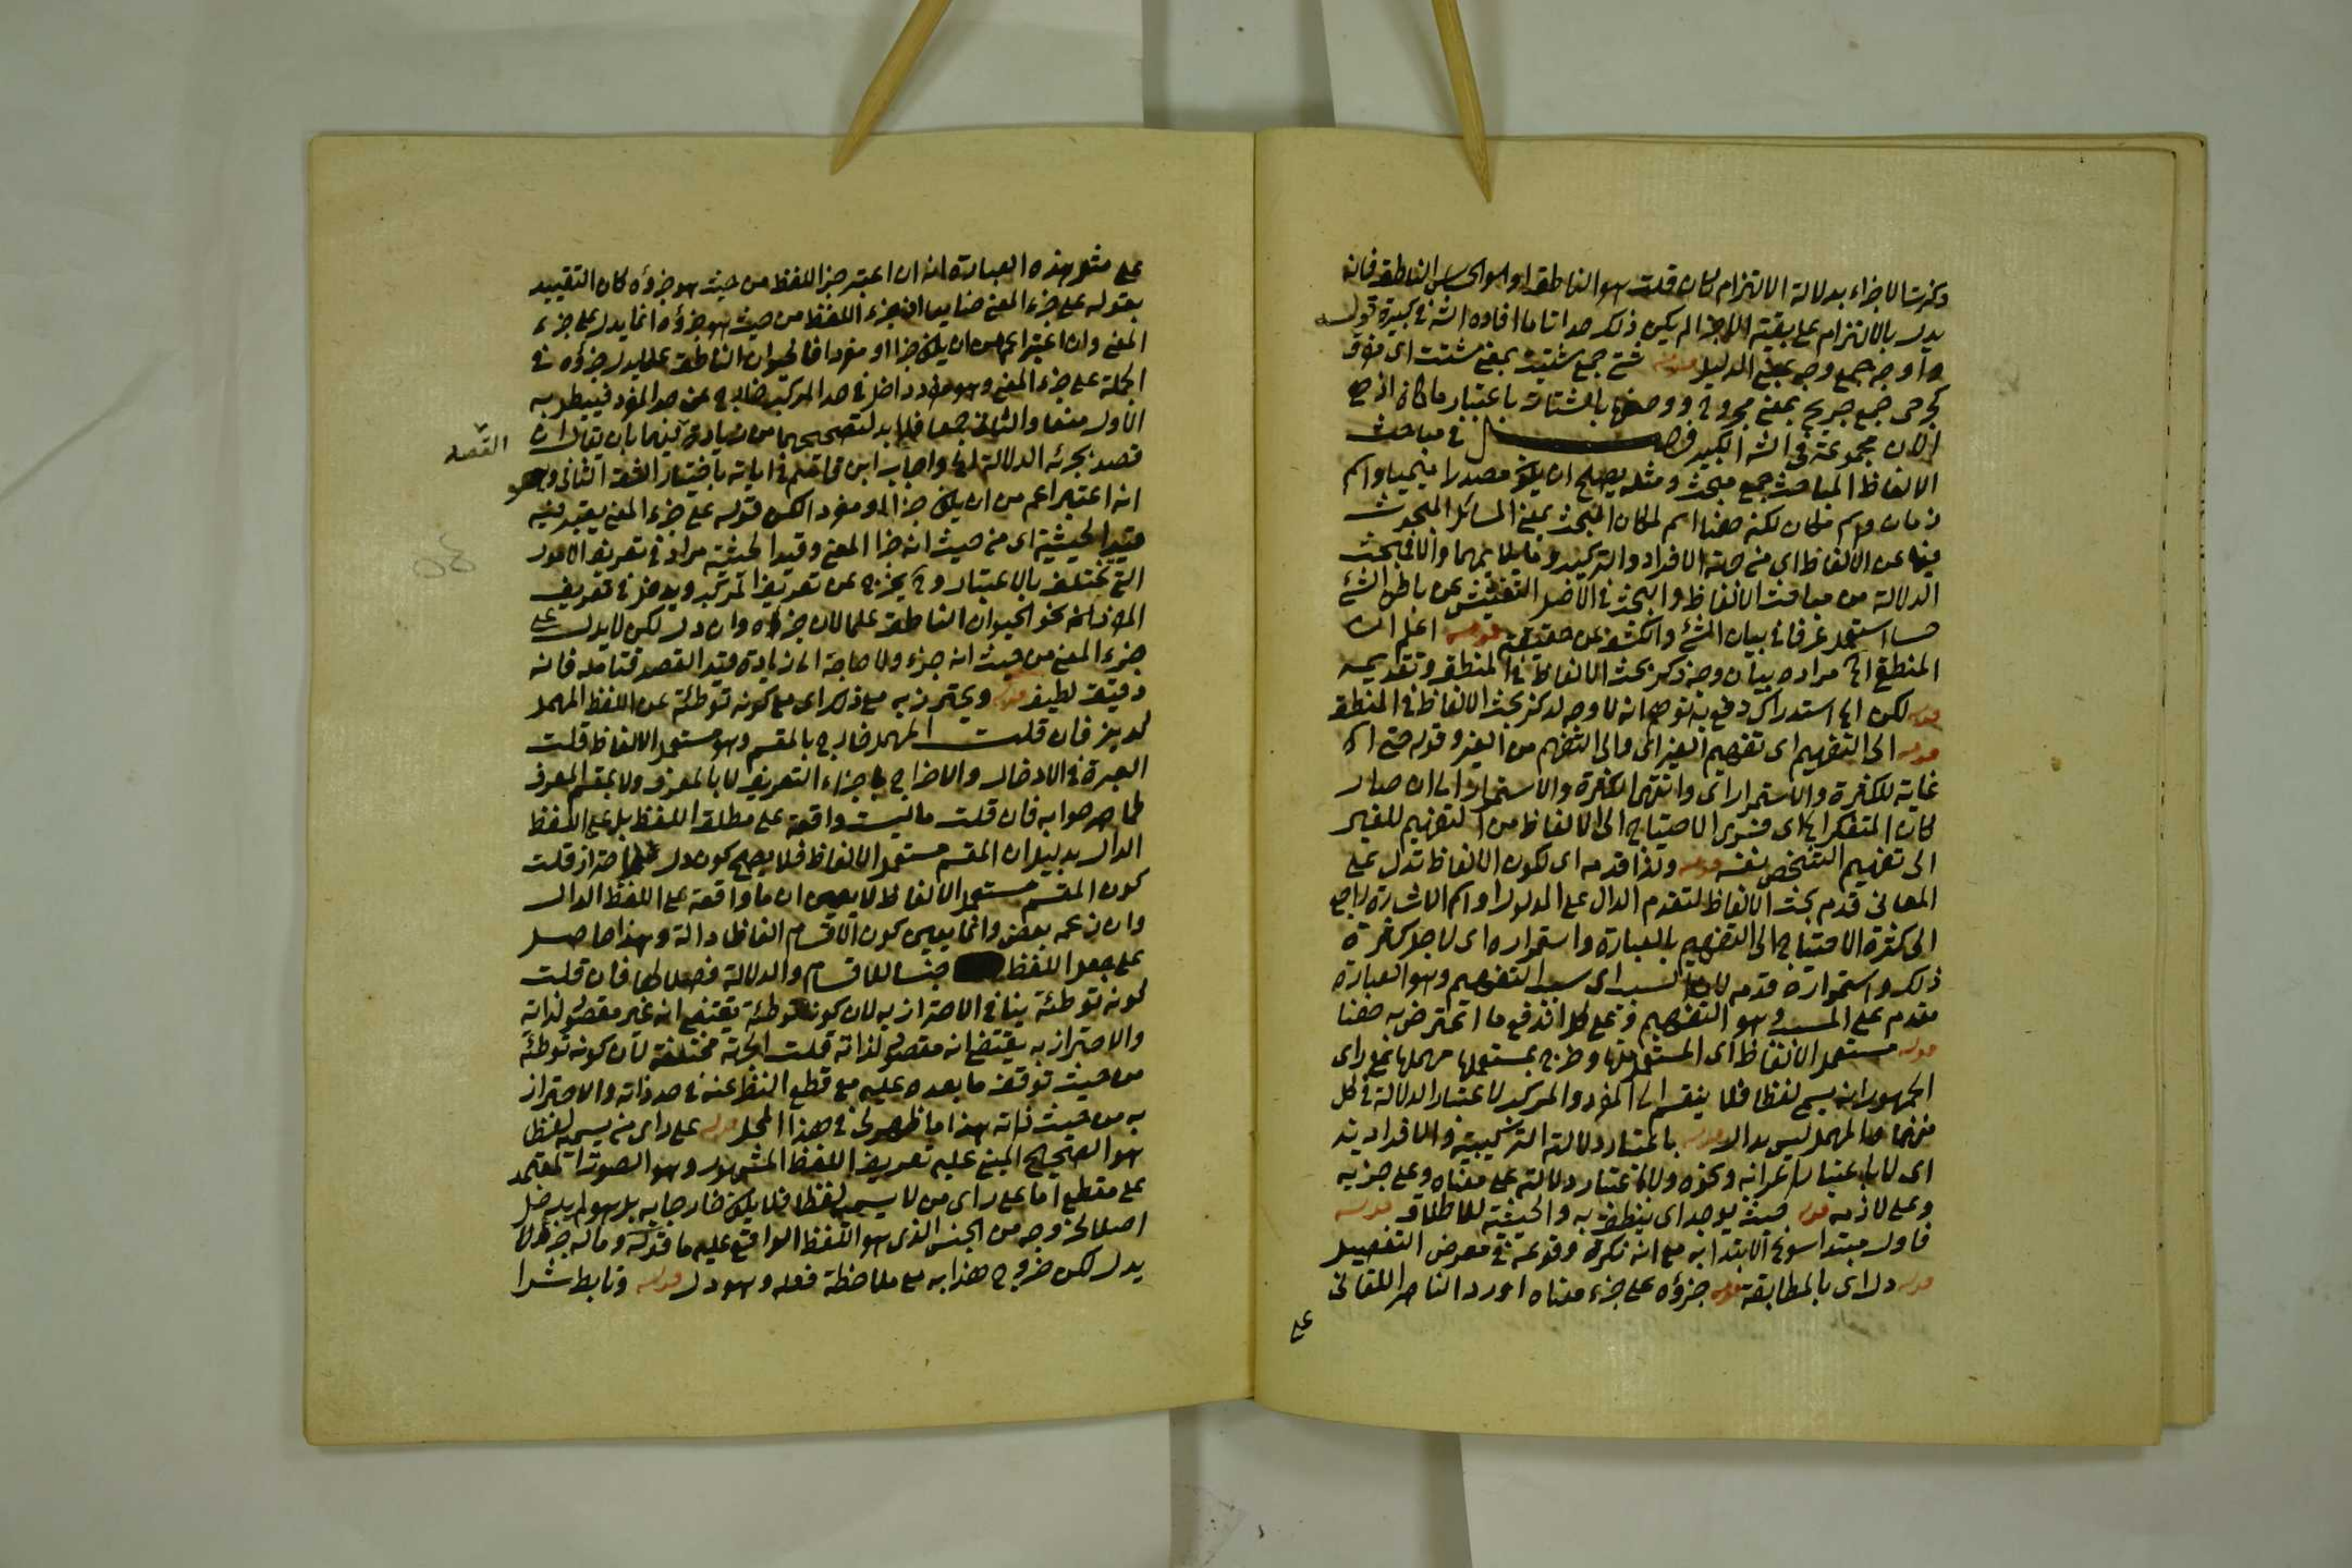 وذكرت الاجزاء بدلالة الالتزام كان قلت هو الناطق او هو الحساس الناطق فانه
يدل بالالتزام على بقية الاجزا لم يكن ذلك حدا تاما افاده الش في كبيره قوله
واوجه جمع وجه بمعنى الدليل قوله شتى جمع شتيت بمعنى مشتت اي مفرق
كجرحى جمع جريح بمعنى مجروح ووصفها بالشتات باعتبار ما كان اذ هي
الان مجموعة في الش الكبير فصل في مباحث
الالفاظ المباحث جمع مبحث ومثله يصلح ان يكون مصدرا ميميا واسم
زمان واسم مكان لكنه هنا اسم لمكان البحث بمعنى المسائل المبحوث
فيها عن الالفاظ اي من جهة الافراد والتركيب وما يلائمهما والا فبحث
الدلالة من مباحث الالفاظ والبحث في الاصل التفتيش عن باطن الشئ
حسا استعمل عرفا في بيان الشئ والكشف عن حقيقته قوله اعلم ان
المنطقي الخ مراده بيان وجه ذكر بحث الالفاظ في المنطق وتقديمه
قوله لكن الخ استدراك دفع به توهم انه لا وجه لذكر بحث الالفاظ في المنطق
قوله الى التفهيم اي تفهيم الغير اي والى التفهم من الغير وقوله حتى الخ
غاية للكثرة والاستمرار اي وانتهى الكثرة والاستمرار الى ان صار
كان المتفكر الخ اي فسرى الاحتياج الى الالفاظ من التفهيم للغير
الى تفهيم الشخص نفسه قوله ولذا قدمه اي لكون الالفاظ تدل على
المعاني قدم بحث الالفاظ لتقدم الدال على المدلول او اسم الاشارة راجع
الى كثرة الاحتياج الى التفهيم بالعبارة واستمراره اي لاجل كثرة
ذلك واستمراره قدمه لان السبب اي سبب التفهيم وهو العبارة
مقدم على المسبب وهو التفهيم وعلى كل اندفع ما اعترض به هنا
قوله مستعمل الالفاظ اي المستعمل منها وخرج بمستعملها مهملها على راي
الجمهور انه يسمى لفظا فلا ينقسم الى المفرد والمركب لاعتبار الدلالة في كل
منهما والمهمل ليس بدال قوله باعتبار دلالته التركيبية والافرادية
اي لا باعتبار اعرابه ونحوه ولا باعتبار دلالته على معناه وعلى جزئه
وعلى لازمه قوله حيث يوجد اي ينطق به والحيثية للاطلاق قوله
فاول مبتدا سوغ الابتدا به مع انه نكرة وقوعه في معرض التفصيل
قوله دل اي بالمطابقة قوله جزؤه على جزء معناه اورد الناصر اللقاني
على
على مثل هذه العبارة انه ان اعتبر جزا اللفظ من حيث هو جزؤه كان التقييد
بقوله على جزء المعنى ضايعا اذ جزء اللفظ من حيث هو جزؤه انما يدل على جزء
المعنى وان اعتبر اعم من ان يكون جزا او مفردا فالحيوان الناطق علما يدل جزؤه في
الجملة على جزء المعنى وهو مفرد داخل في حد المركب خارج عن حد المفرد فيبطل به
الاول منعا والثاني جمعا فلا بد لتصحيحهما من زيادة فيهما بان يقال ان
قصد بجزئه الدلالة الخ واجاب ابن قاسم في اياته باختيار الشق الثاني وهو
القصد
انه اعتبر اعم من ان يكون جزا او مفردا لكن قوله على جزء المعنى يعتبر فيه
قيد الحيثية اي من حيث انه جزا المعنى وقيد الحيثية مراد في تعريف الامور
التي تختلف بالاعتبار وح يخرج عن تعريف المركب ويدخل في تعريف
المفرد نحو الحيوان الناطق علما لان جزاه وان دل لكن لا يدل على
جزء المعنى من حيث انه جزء ولا حاجة الى زيادة قيد القصد فتامله فانه
دقيق لطيف قوله ويحترز به مع ذلك اي مع كونه توطئة عن اللفظ المهمل
كديز فان قلت المهمل خارج بالمقسم وهو مستعمل الالفاظ قلت
العبرة في الادخال والاخراج باجزاء التعريف لا بالمعرف ولا بمقسم المعرف
كما صرحوا به فان قلت ما ليست واقعة على مطلق اللفظ بل على اللفظ
الدال بدليل ان المقسم مستعمل الالفاظ فلا يصح كون دل للاحتراز قلت
كون المقسم مستعمل الالفاظ لا يعين ان ما واقعة على اللفظ الدال
وان زعمه بعض وانما يعين كون الاقسام الفاظا دالة وهذا حاصل
على جعل اللفظ جنسا للاقسام والدلالة فصلا لها فان قلت
كونه توطئة ينافي الاحتراز به لان كونه توطئة يقتضي انه غير مقصود لذاته
والاحتراز به يقتضي انه مقصود لذاته قلت الجهة مختلفة لان كونه توطئة
من حيث توقف ما بعده عليه مع قطع النظر عنه في حد ذاته والاحتراز
به من حيث ذاته هذا ما ظهر لي في هذا المحل قوله على راي من يسميه لفظا
هو الصحيح المبني عليه تعريف اللفظ المشهور وهو الصوت المعتمد
على مقطع اما على راي من لا يسميه لفظا فلا يكون خارجا به بل هو لم يدخل
اصلا لخروجه من الجنس الذي هو اللفظ الواقع عليه ما قوله وما له جزء لا
يدل لكن خروج هذا به مع ملاحظة فعله وهو دل قوله وتابط شرا